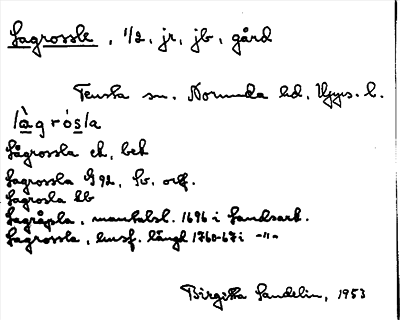 Lagrossle, 1/2, jr, jb, gård
Tensta sn. Norunda hd, Upps. l.
làgrósla
Lågrossla ek, bek
Lagrossla G 92, Sv. ortf.
Lagrosla bb
Lagråpla, mantalsl. 1696 i Landsark.
Lagrossla, husf. längd 1760-67 i -"-
Birgitta Sandelin, 1953